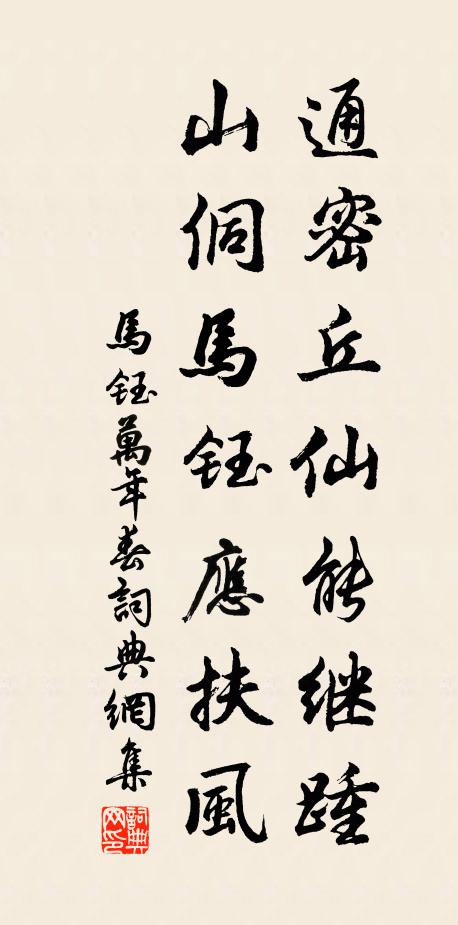 通密丘仙能继踵
山侗馬鈺應扶風
馬鈺萬年春詞典網集
詞典网印